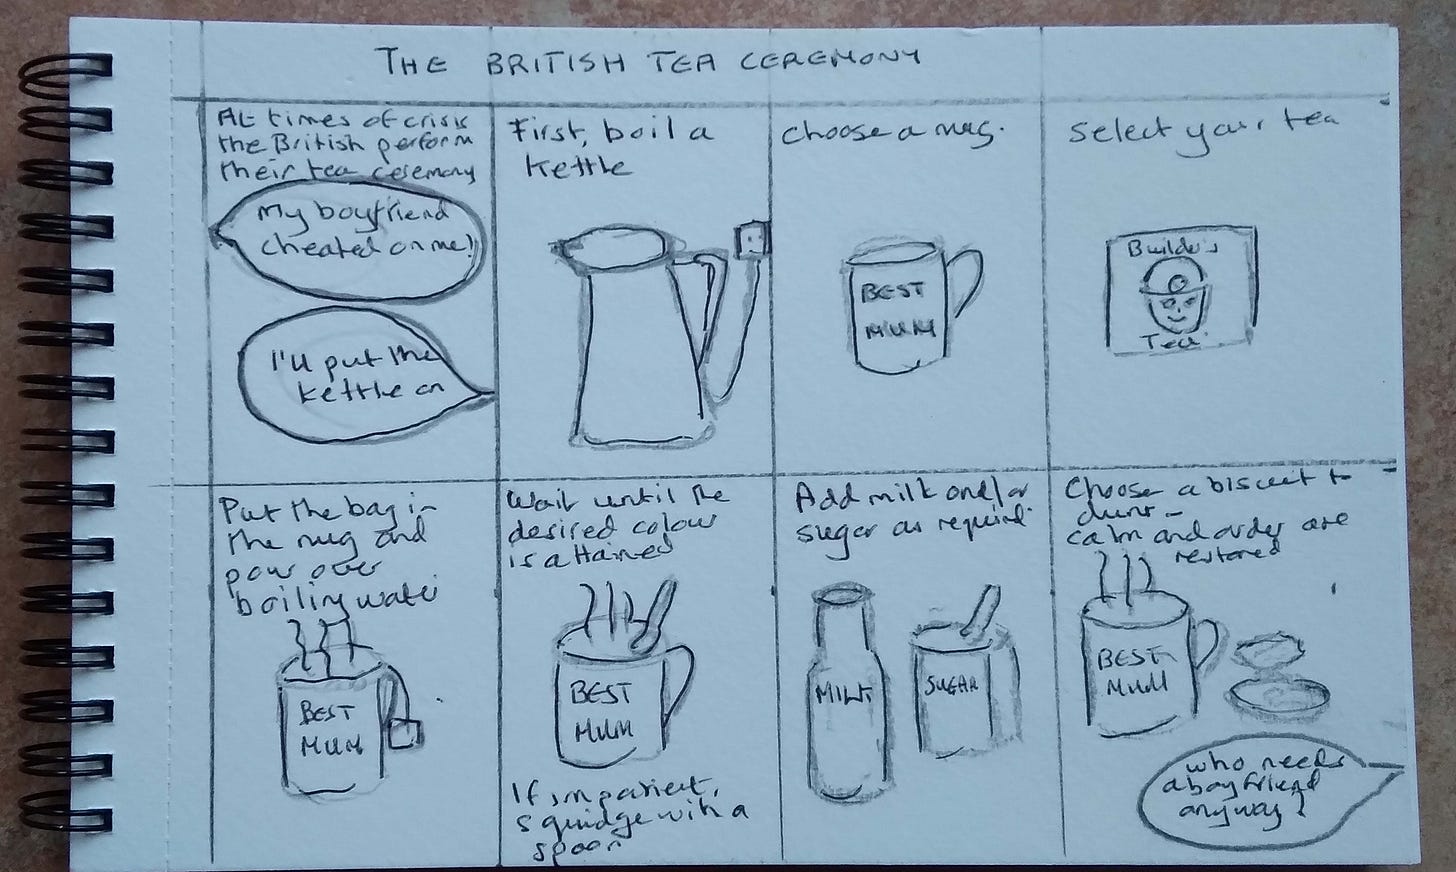 THE BRITISH TEA CEREMONY
At times of crisis
the British perform
their tea ceremony
My boyfriend
cheated on me!
I'll put the
kettle on
First, boil a
kettle
choose a mug.
select your tea
BEST
MUM
Builder's
Tea
Put the bag in
the mug and
pour over
boiling water
BEST
MUM
Wait until the
desired colour
is attained
BEST
MUM
If impatient,
squidge with a
spoon
Add milk and/or
sugar as required.
MILK
SUGAR
Choose a biscuit to
dunk -
calm and order are
restored
BEST
MUM
who needs
a boyfriend
anyway?